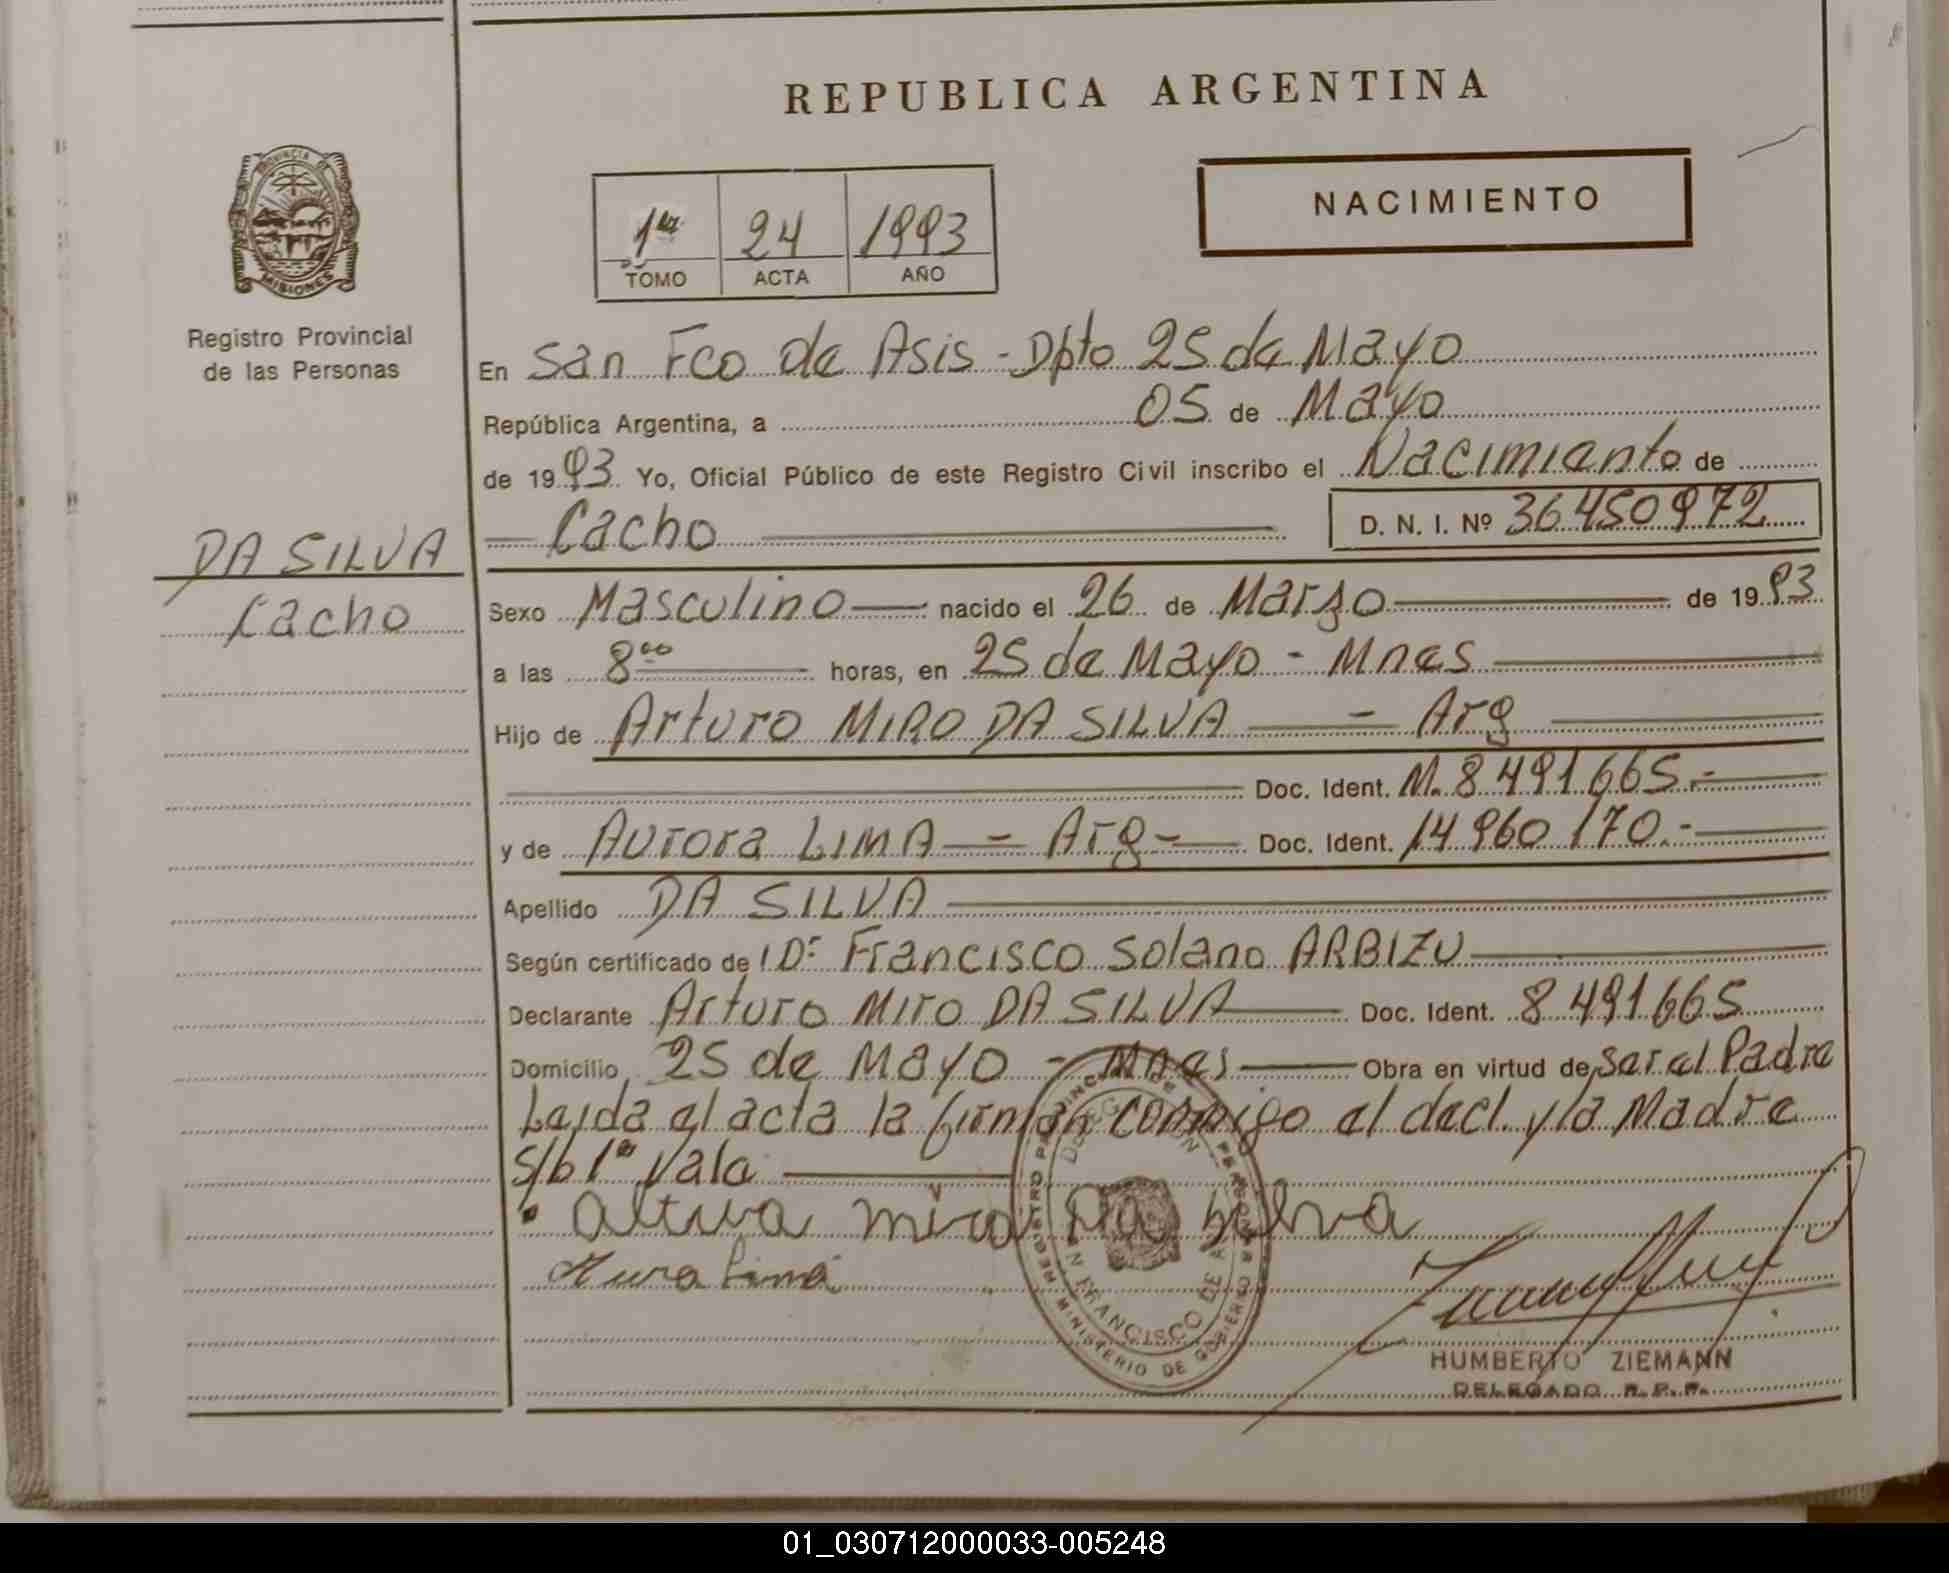 REPUBLICA ARGENTINA
PROVINCIA DE
MISIONES
Registro Provincial
de las Personas
1ra 24 1993
TOMO ACTA AÑO
NACIMIENTO
En San Fco de Asis - Dpto 25 de Mayo
República Argentina, a 05 de Mayo
de 1993 Yo, Oficial Público de este Registro Civil inscribo el Nacimiento de
Cacho D. N. I. Nº 36450972
DA SILVA
Cacho
Sexo Masculino nacido el 26 de Marzo de 1993
a las 8⁰⁰ horas, en 25 de Mayo - Mnes
Hijo de Arturo MIRO DA SILVA - Arg
Doc. Ident. M. 8491665.-
y de Aurora LIMA - Arg - Doc. Ident. 14960170.-
Apellido DA SILVA
Según certificado de Dr Francisco Solano ARBIZU
Declarante Arturo MIRO DA SILVA Doc. Ident. 8491665
Domicilio 25 de MAYO - Mnes Obra en virtud de Ser el Padre
Leida el acta la firman conmigo el decl. y la Madre
s/b 1ª Vale
miro Da Silva
Lima
REGISTRO PROVINCIAL DE LAS PERSONAS
DELEGACION
SAN FRANCISCO DE
MINISTERIO DE GOBIERNO
HUMBERTO ZIEMANN
DELEGADO R. P. P.
01_030712000033-005248